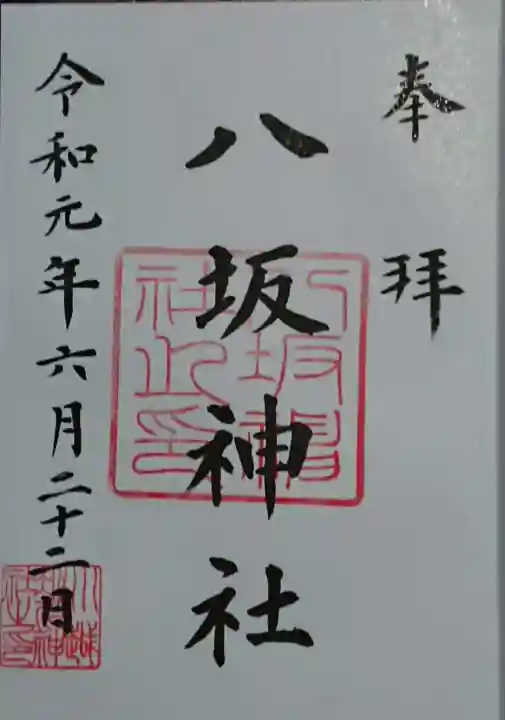 奉拝
八坂神社
八坂神社之印
令和元年六月二十二日